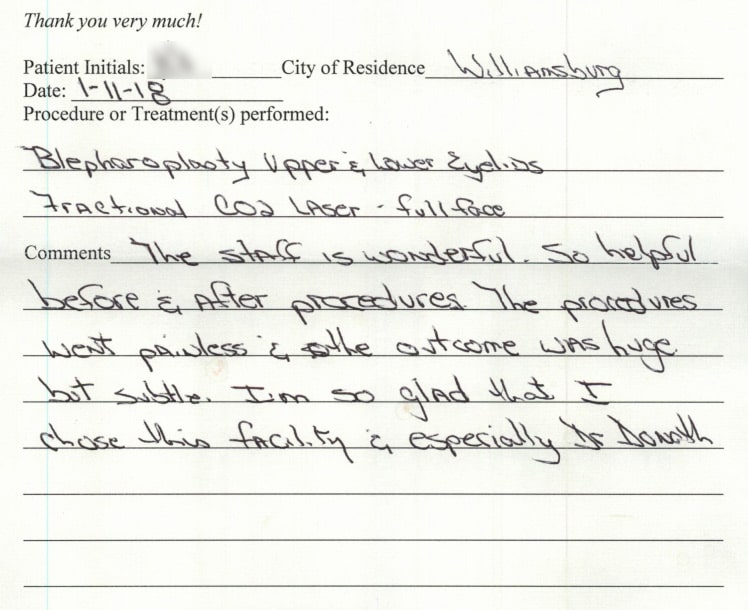 Thank you very much!
Patient Initials: City of Residence Williamsburg
Date: 1-11-18
Procedure or Treatment(s) performed:
Blepharoplasty Upper & Lower Eyelids
Fractional CO2 LAser - full face
Comments The staff is wonderful. So helpful
before & After procedures. The procedures
went painless & the outcome was huge
but subtle. I'm so glad that I
chose this facility & especially Dr Donath